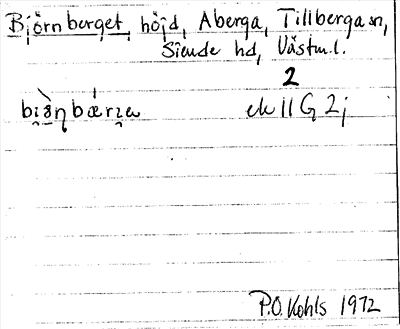 Björnberget, höjd, Aberga, Tillberga sn,
Siende hd, Västm.l.
2
ek 11 G 2j
P.O. Kohls 1972